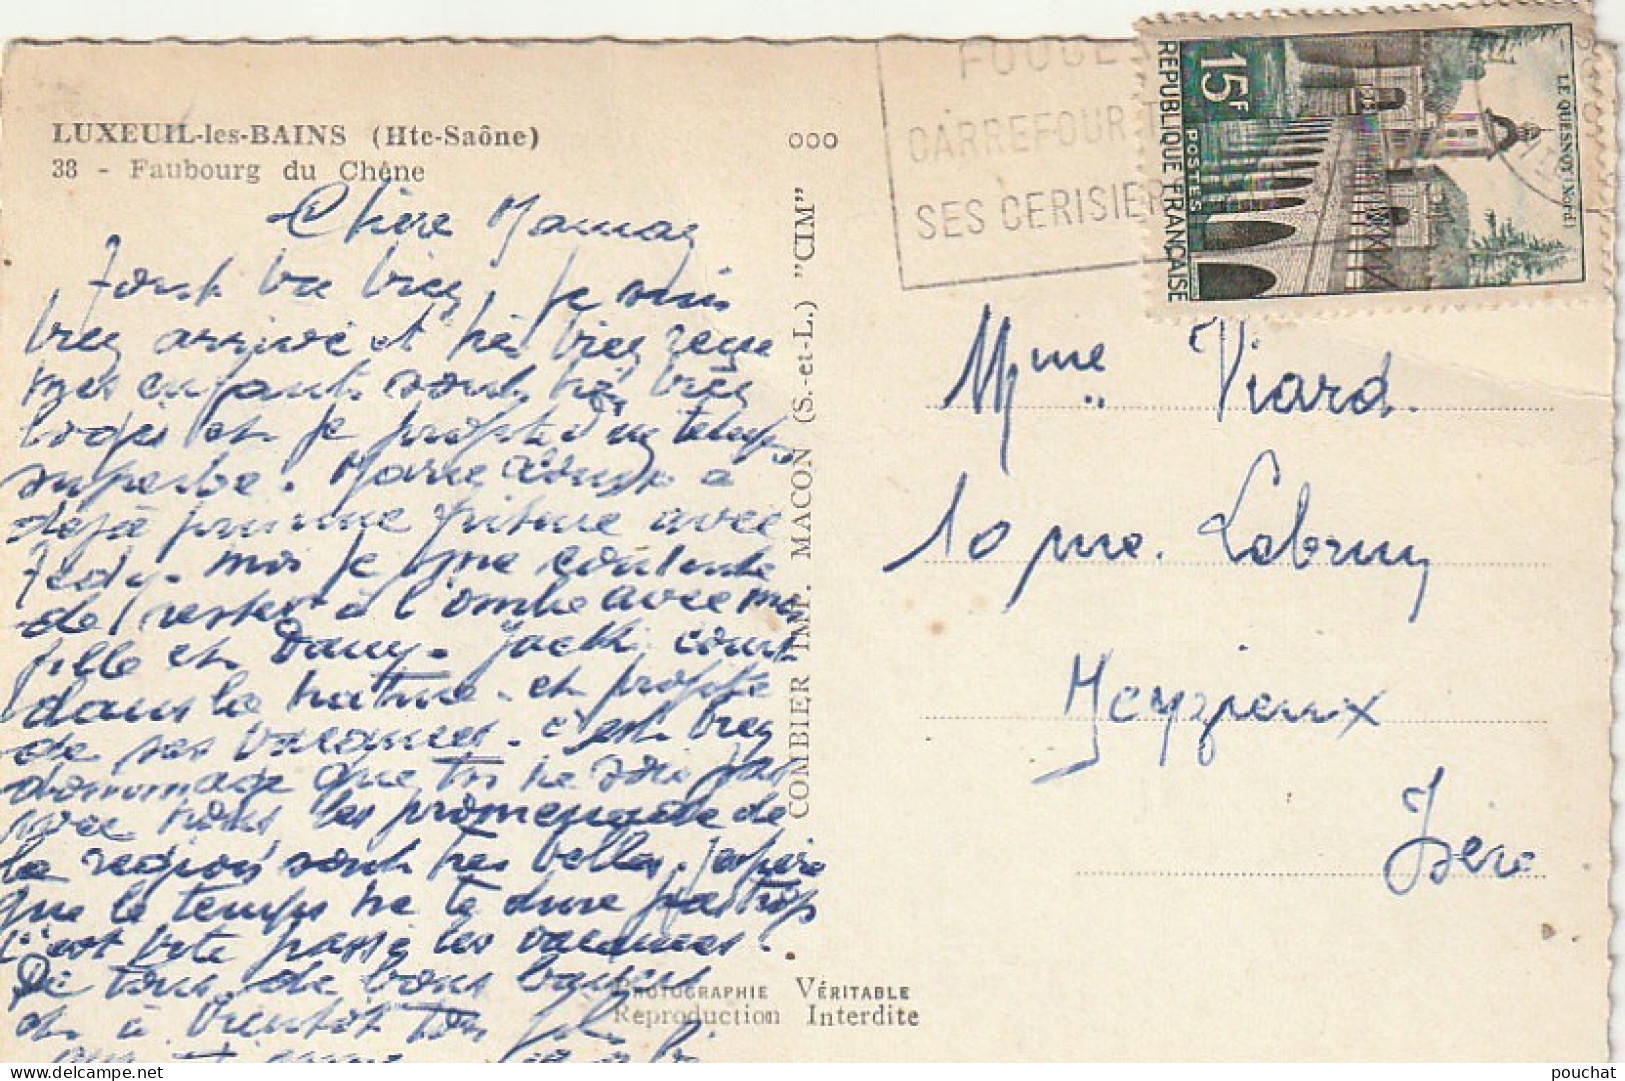 LUXEUIL-les-BAINS (Hte-Saône)
38 - Faubourg du Chêne
Chère Maman
Tout va bien, je suis
bien arrivé et très bien reçu
mes enfants sont très bien
logés et je profite d'un temps
superbe. Marie Louise a
déjà pris une friture avec
moi je me contente
de rester à l'ombre avec ma
fille et Dany. Jacki court
dans la nature. et profite
de ses vacances. c'est bien
dommage que tu ne sois pas
avec nous les promenade de
la région sont très belles. J'espère
que le temps ne te dure pas trop
c'est vite passé les vacances.
De tous de bons baisers
et à bientôt ton
COMBIER IMP. MACON (S.-et-L.) "CIM"
PHOTOGRAPHIE VÉRITABLE
Reproduction Interdite
000
FOUGE
CARREFOUR
SES CERISIER
15F
POSTES
RÉPUBLIQUE FRANÇAISE
LE QUESNOY (Nord)
Mme Viard.
10 rue. Lebrun
Meyzieux
Isère
pouchat